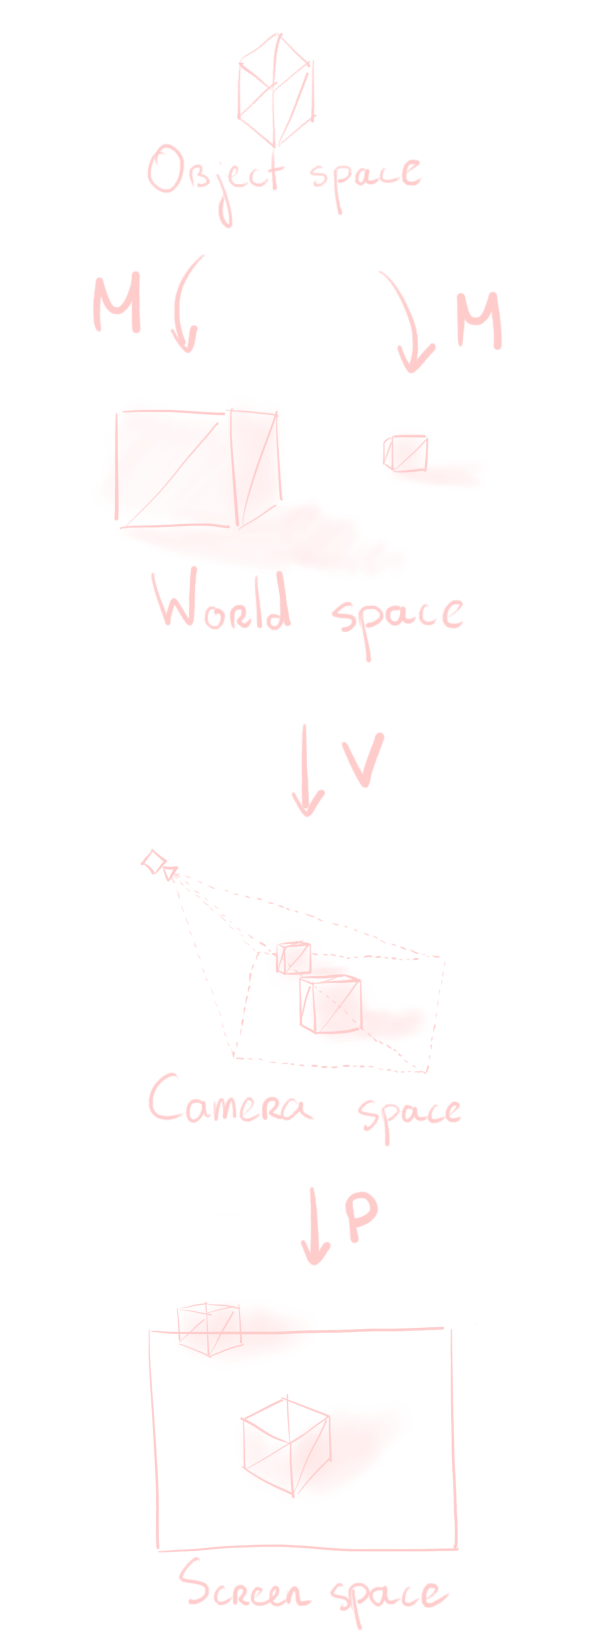 Object space
M M
World space
V
Camera space
P
Screen space